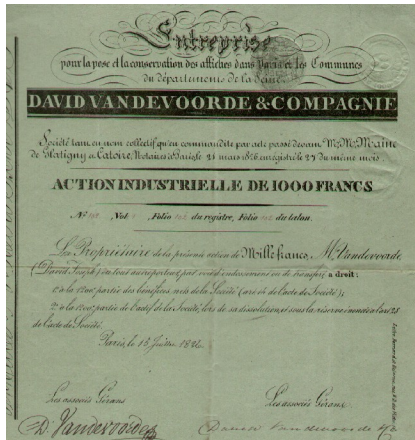 Entreprise
pour la pose et la conservation des affiches dans Paris et les Communes
du département de la Seine.
DAVID VANDEVOORDE & COMPAGNIE
Société tant en nom collectif qu'en commandite par acte passé devant M.es Maine
de Glatigny et Catoire, Notaires à Paris le 21 mars 1826 enregistré le 27 du même mois.
ACTION INDUSTRIELLE DE 1000 FRANCS.
N.o Vol. Folio du registre, Folio du talon.
Le Propriétaire de la présente action de Mille francs, M. Vandevoorde
(David Joseph) ou tout autre porteur par voie d'endossement ou de transfert a droit:
1.o à la partie des bénéfices nets de la Société (art. de l'acte de Société);
2.o à la partie de l'actif de la Société lors de sa dissolution, et sous la réserve énoncée à l'art. 28
de l'acte de Société.
Paris, le 15 Juillet 1826.
Les associés Gérans Les associés Gérans
D. Vandevoorde